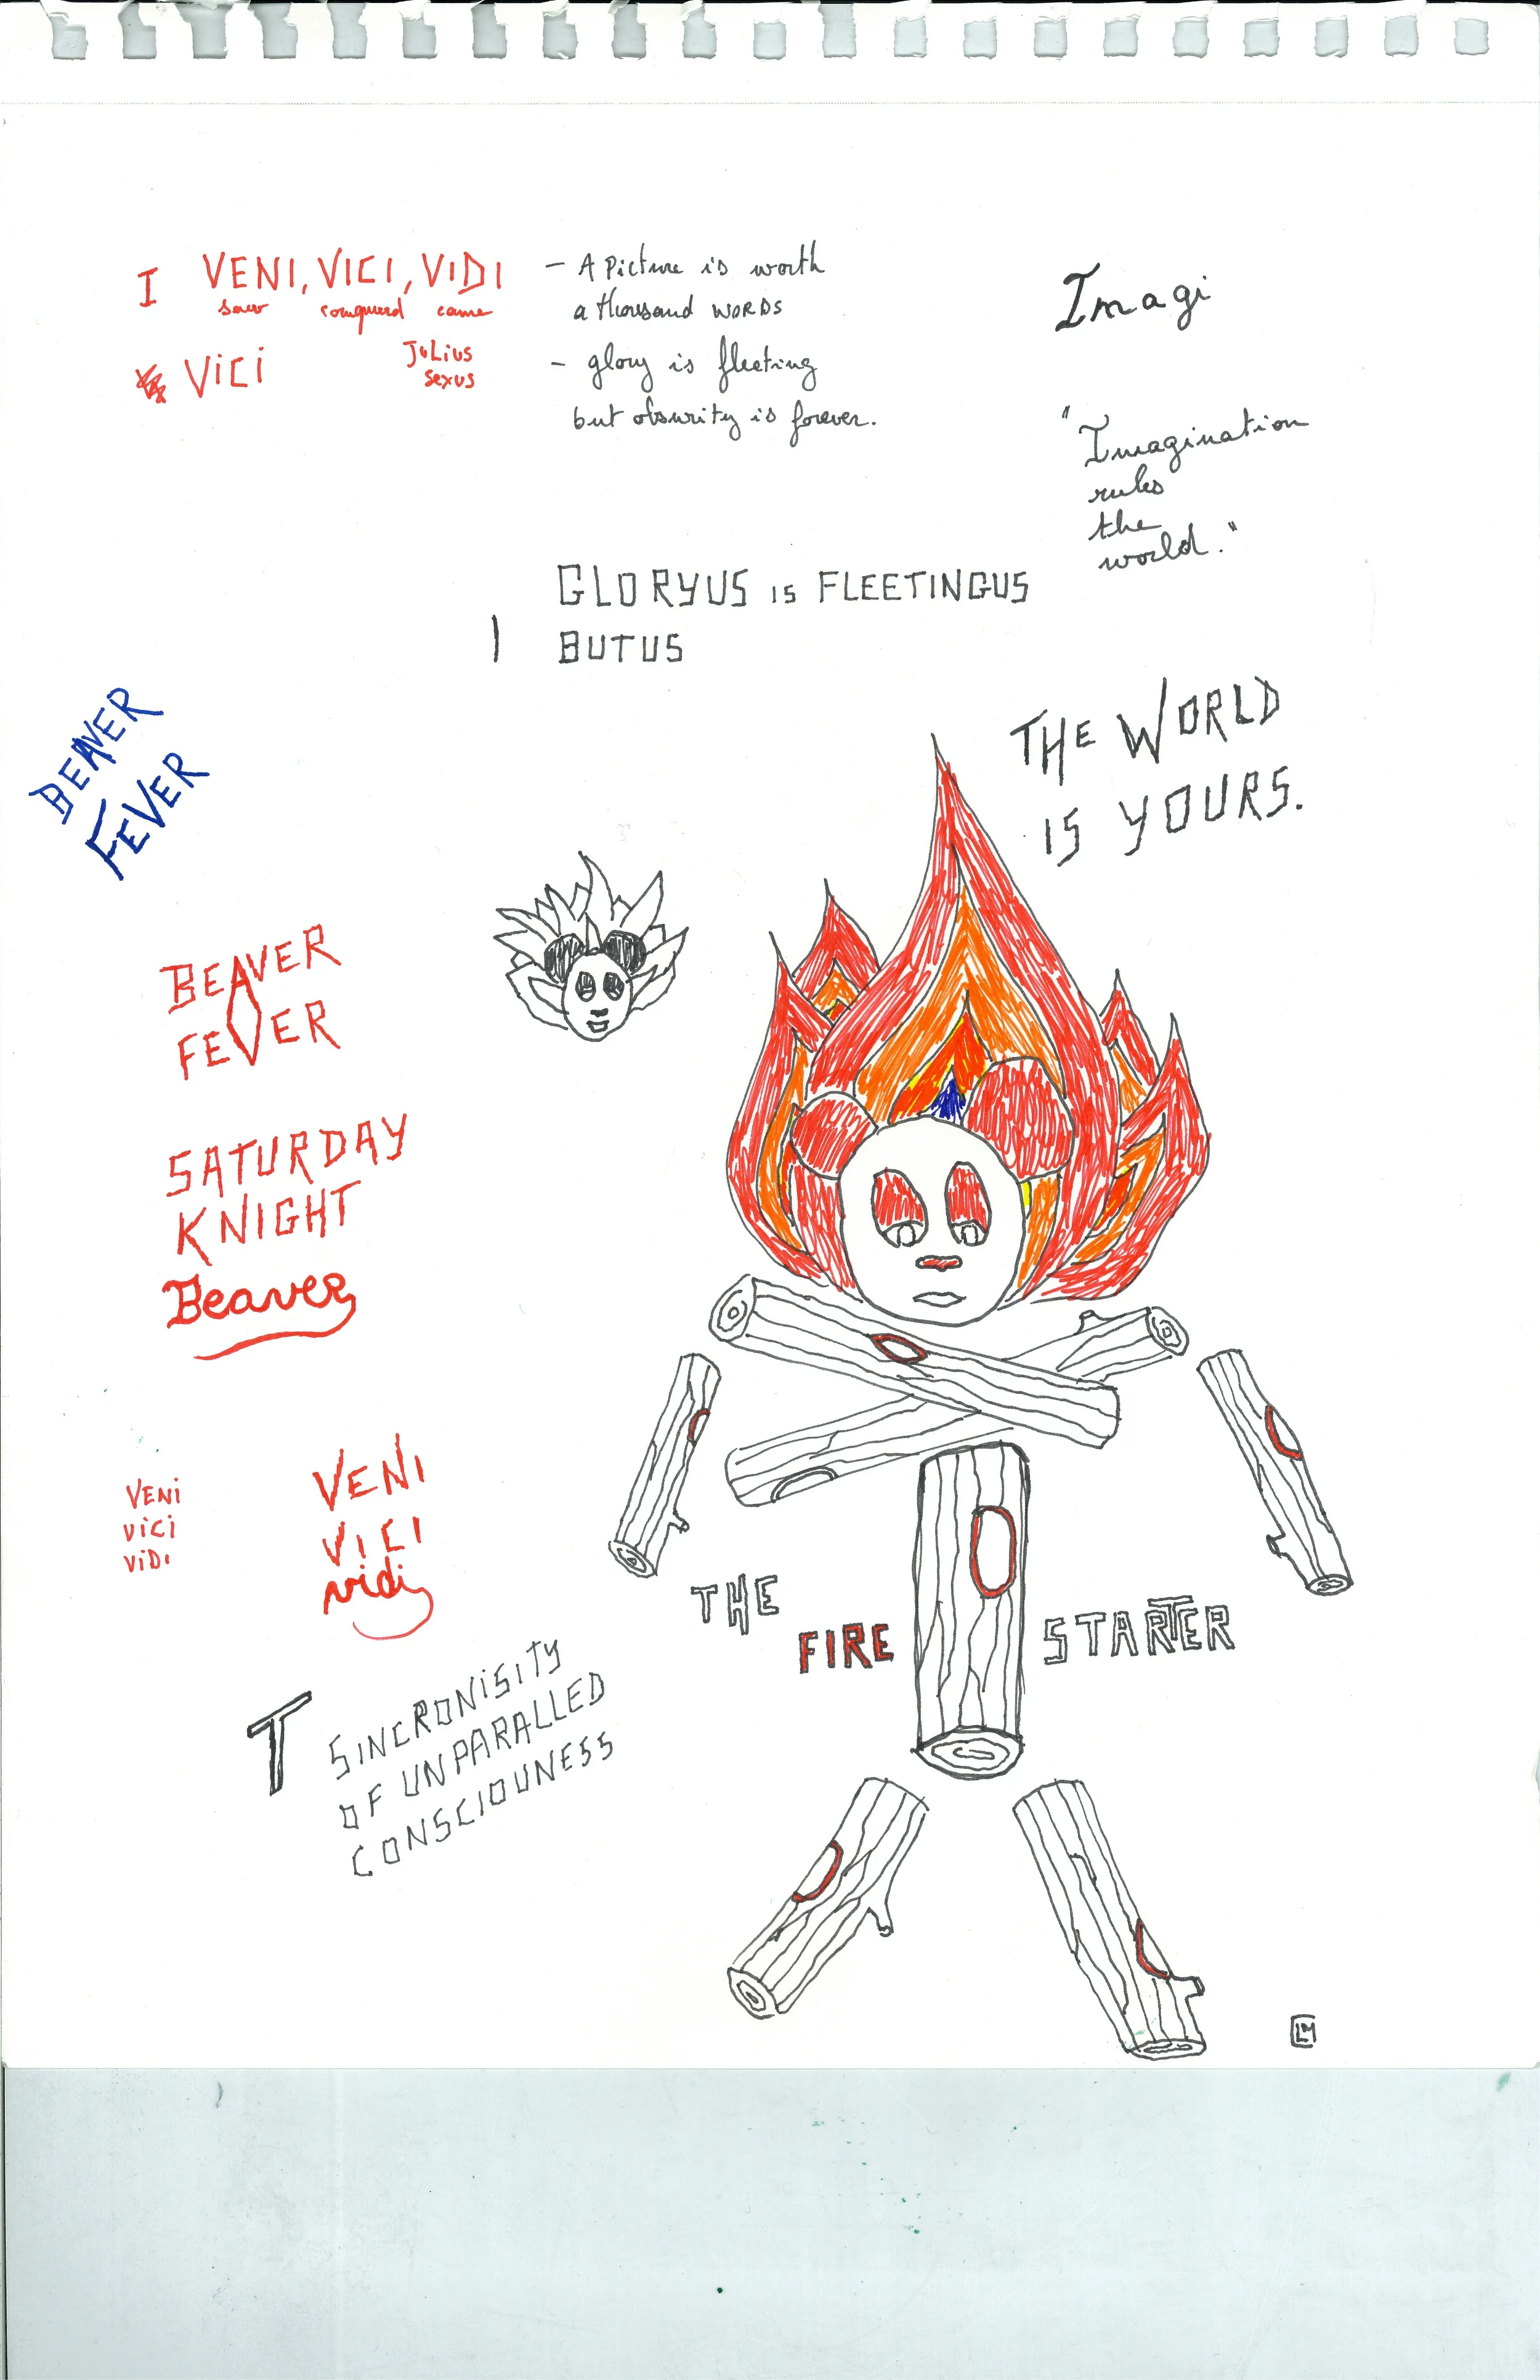 I VENI, VICI, VIDI
saw conquerd came
VICI
JULIUS
SEXUS
- A Picture is worth
a thousand WORDS
- glory is fleeting
but obsurity is forever.
Imagi
"Imagination
rules
the
world."
GLORYUS IS FLEETINGUS
I BUTUS
BEAVER
FEVER
THE WORLD
IS YOURS.
BEAVER
FEVER
SATURDAY
KNIGHT
Beaver
VENI
VICI
VIDI
VENI
VICI
vidi
THE
FIRE STARTER
T SINCRONISITY
OF UNPARALLED
CONSCIOUNESS
LM